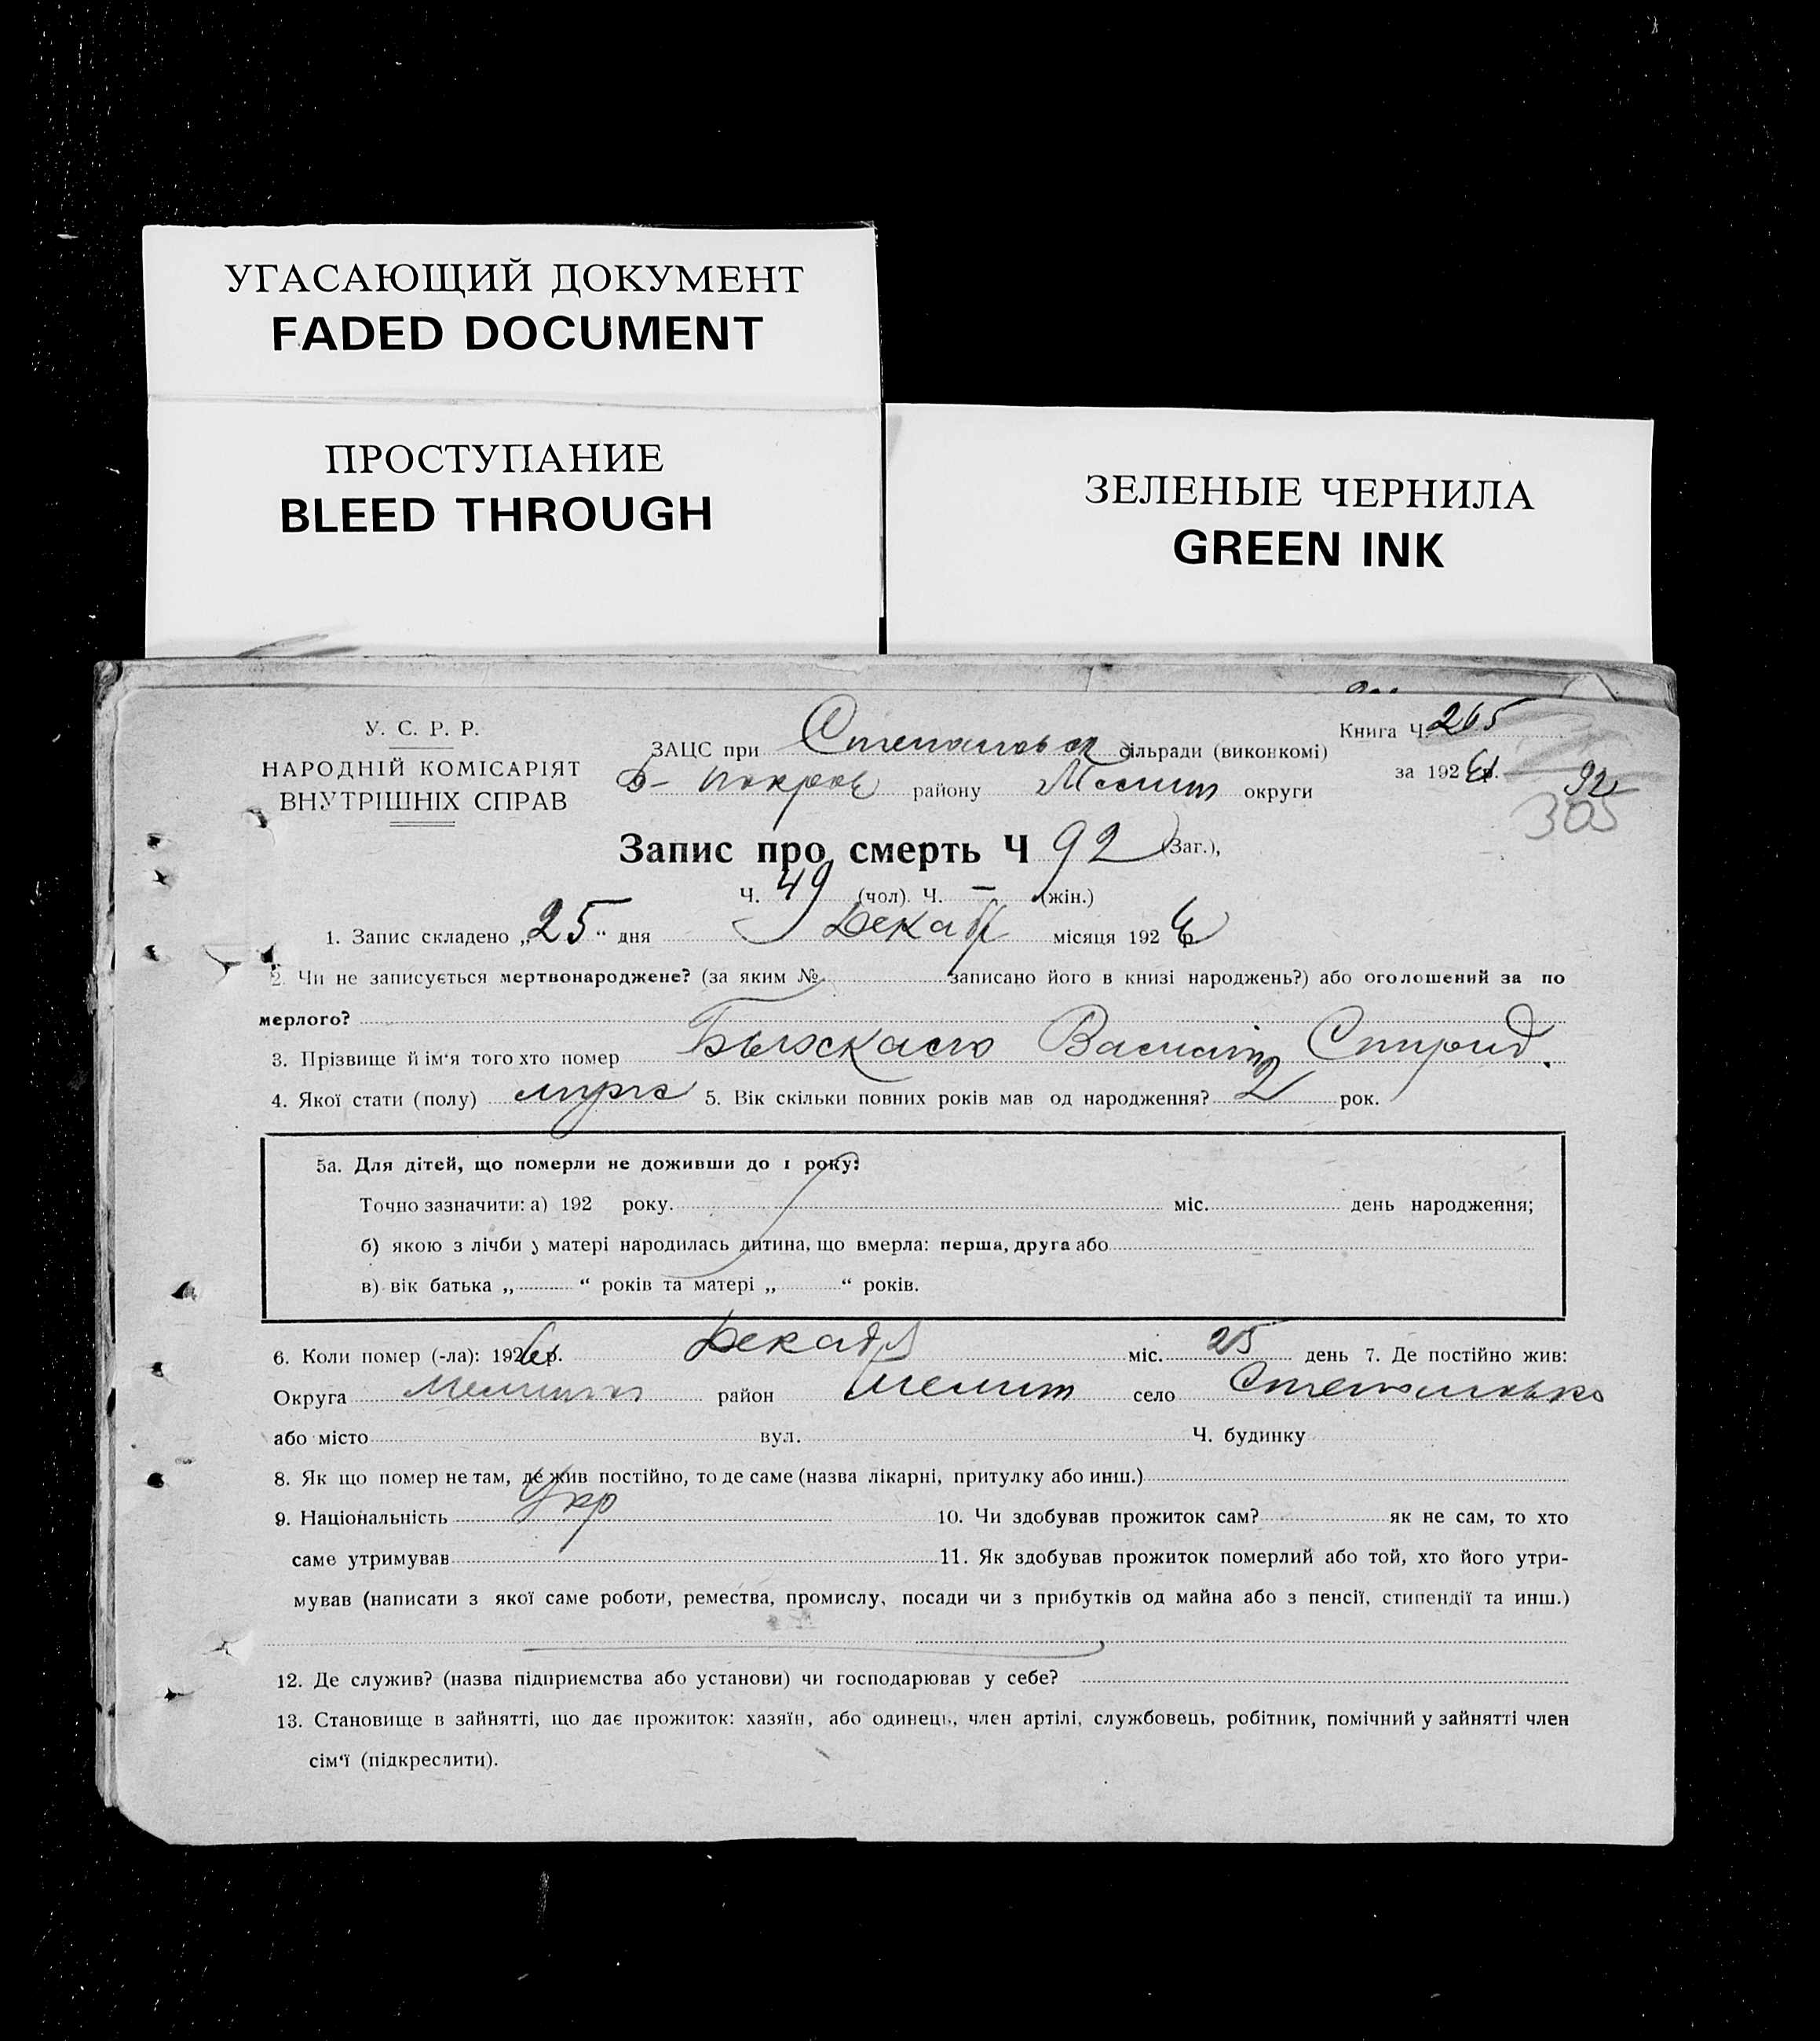 УГАСАЮЩИЙ ДОКУМЕНТ
FADED DOCUMENT
ПРОСТУПАНИЕ
BLEED THROUGH
ЗЕЛЕНЫЕ ЧЕРНИЛА
GREEN INK
У. С. Р. Р.
НАРОДНІЙ КОМІСАРІЯТ
ВНУТРІШНІХ СПРАВ
ЗАЦС при сільради (виконкомі)
району Мелит округи
Книга Ч. 265
за 192 р.
92
305
Запис про смерть Ч 92 (Заг.),
Ч. 49 (чол). Ч. – (жін.)
1. Запис складено „25“ дня Декаб місяця 192 р
2. Чи не записується мертвонароджене? (за яким № записано його в книзі народжень?) або оголошений за по
мерлого?
3. Прізвище й ім‘я того хто помер Василь Спирид.
4. Якої стати (полу) муж 5. Вік скільки повних років мав од народження? 2 рок.
5а. Для дітей, що померли не доживши до 1 року:
Точно зазначити: а) 192 року. міс. день народження;
б) якою з лічби у матері народилась дитина, що вмерла: перша, друга або
в) вік батька „ “ років та матері „ “ років.
6. Коли помер (-ла): 192 р. Декаб міс. 25 день 7. Де постійно жив:
Округа район Мелит село
або місто вул. Ч. будинку
8. Як що помер не там, де жив постійно, то де саме (назва лікарні, притулку або инш.)
9. Національність Укр 10. Чи здобував прожиток сам? як не сам, то хто
саме утримував 11. Як здобував прожиток померлий або той, хто його утри-
мував (написати з якої саме роботи, ремества, промислу, посади чи з прибутків од майна або з пенсії, стипендії та инш.)
12. Де служив? (назва підприємства або установи) чи господарював у себе?
13. Становище в зайнятті, що дає прожиток: хазяїн, або одинець, член артілі, службовець, робітник, помічний у зайнятті член
сім‘ї (підкреслити).